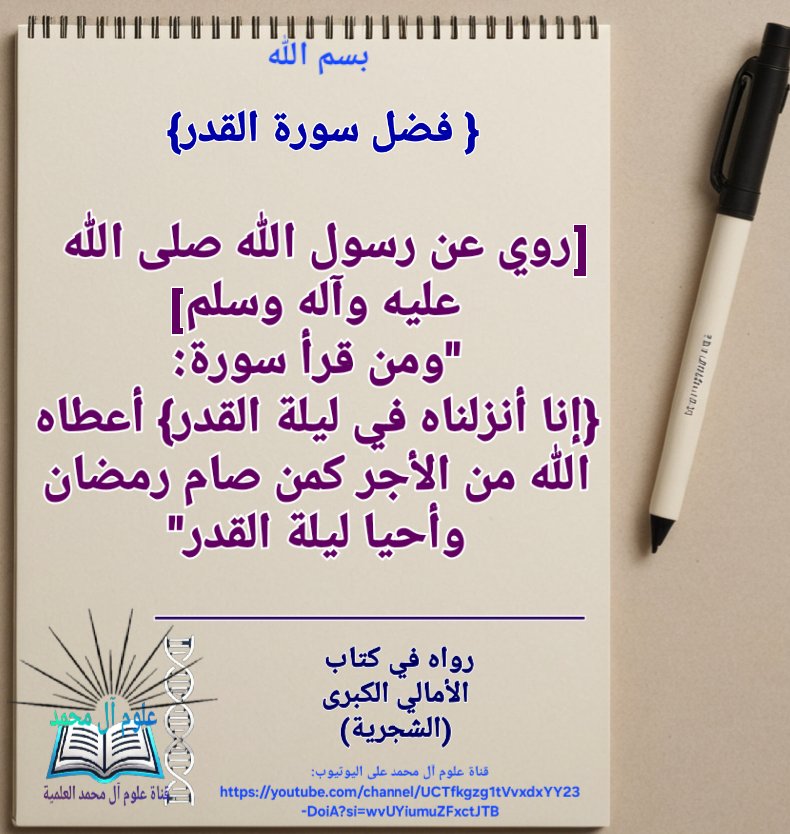 بسم الله
{ فضل سورة القدر}
[روي عن رسول الله صلى الله
عليه وآله وسلم]
"ومن قرأ سورة:
{إنا أنزلناه في ليلة القدر} أعطاه
الله من الأجر كمن صام رمضان
وأحيا ليلة القدر"
رواه في كتاب
الأمالي الكبرى
(الشجرية)
علوم آل محمد
قناة علوم آل محمد العلمية
قناة علوم آل محمد على اليوتيوب:
https://youtube.com/channel/UCTfkgzg1tVvxdxYY23
-DoiA?si=wvUYiumuZFxctJTB